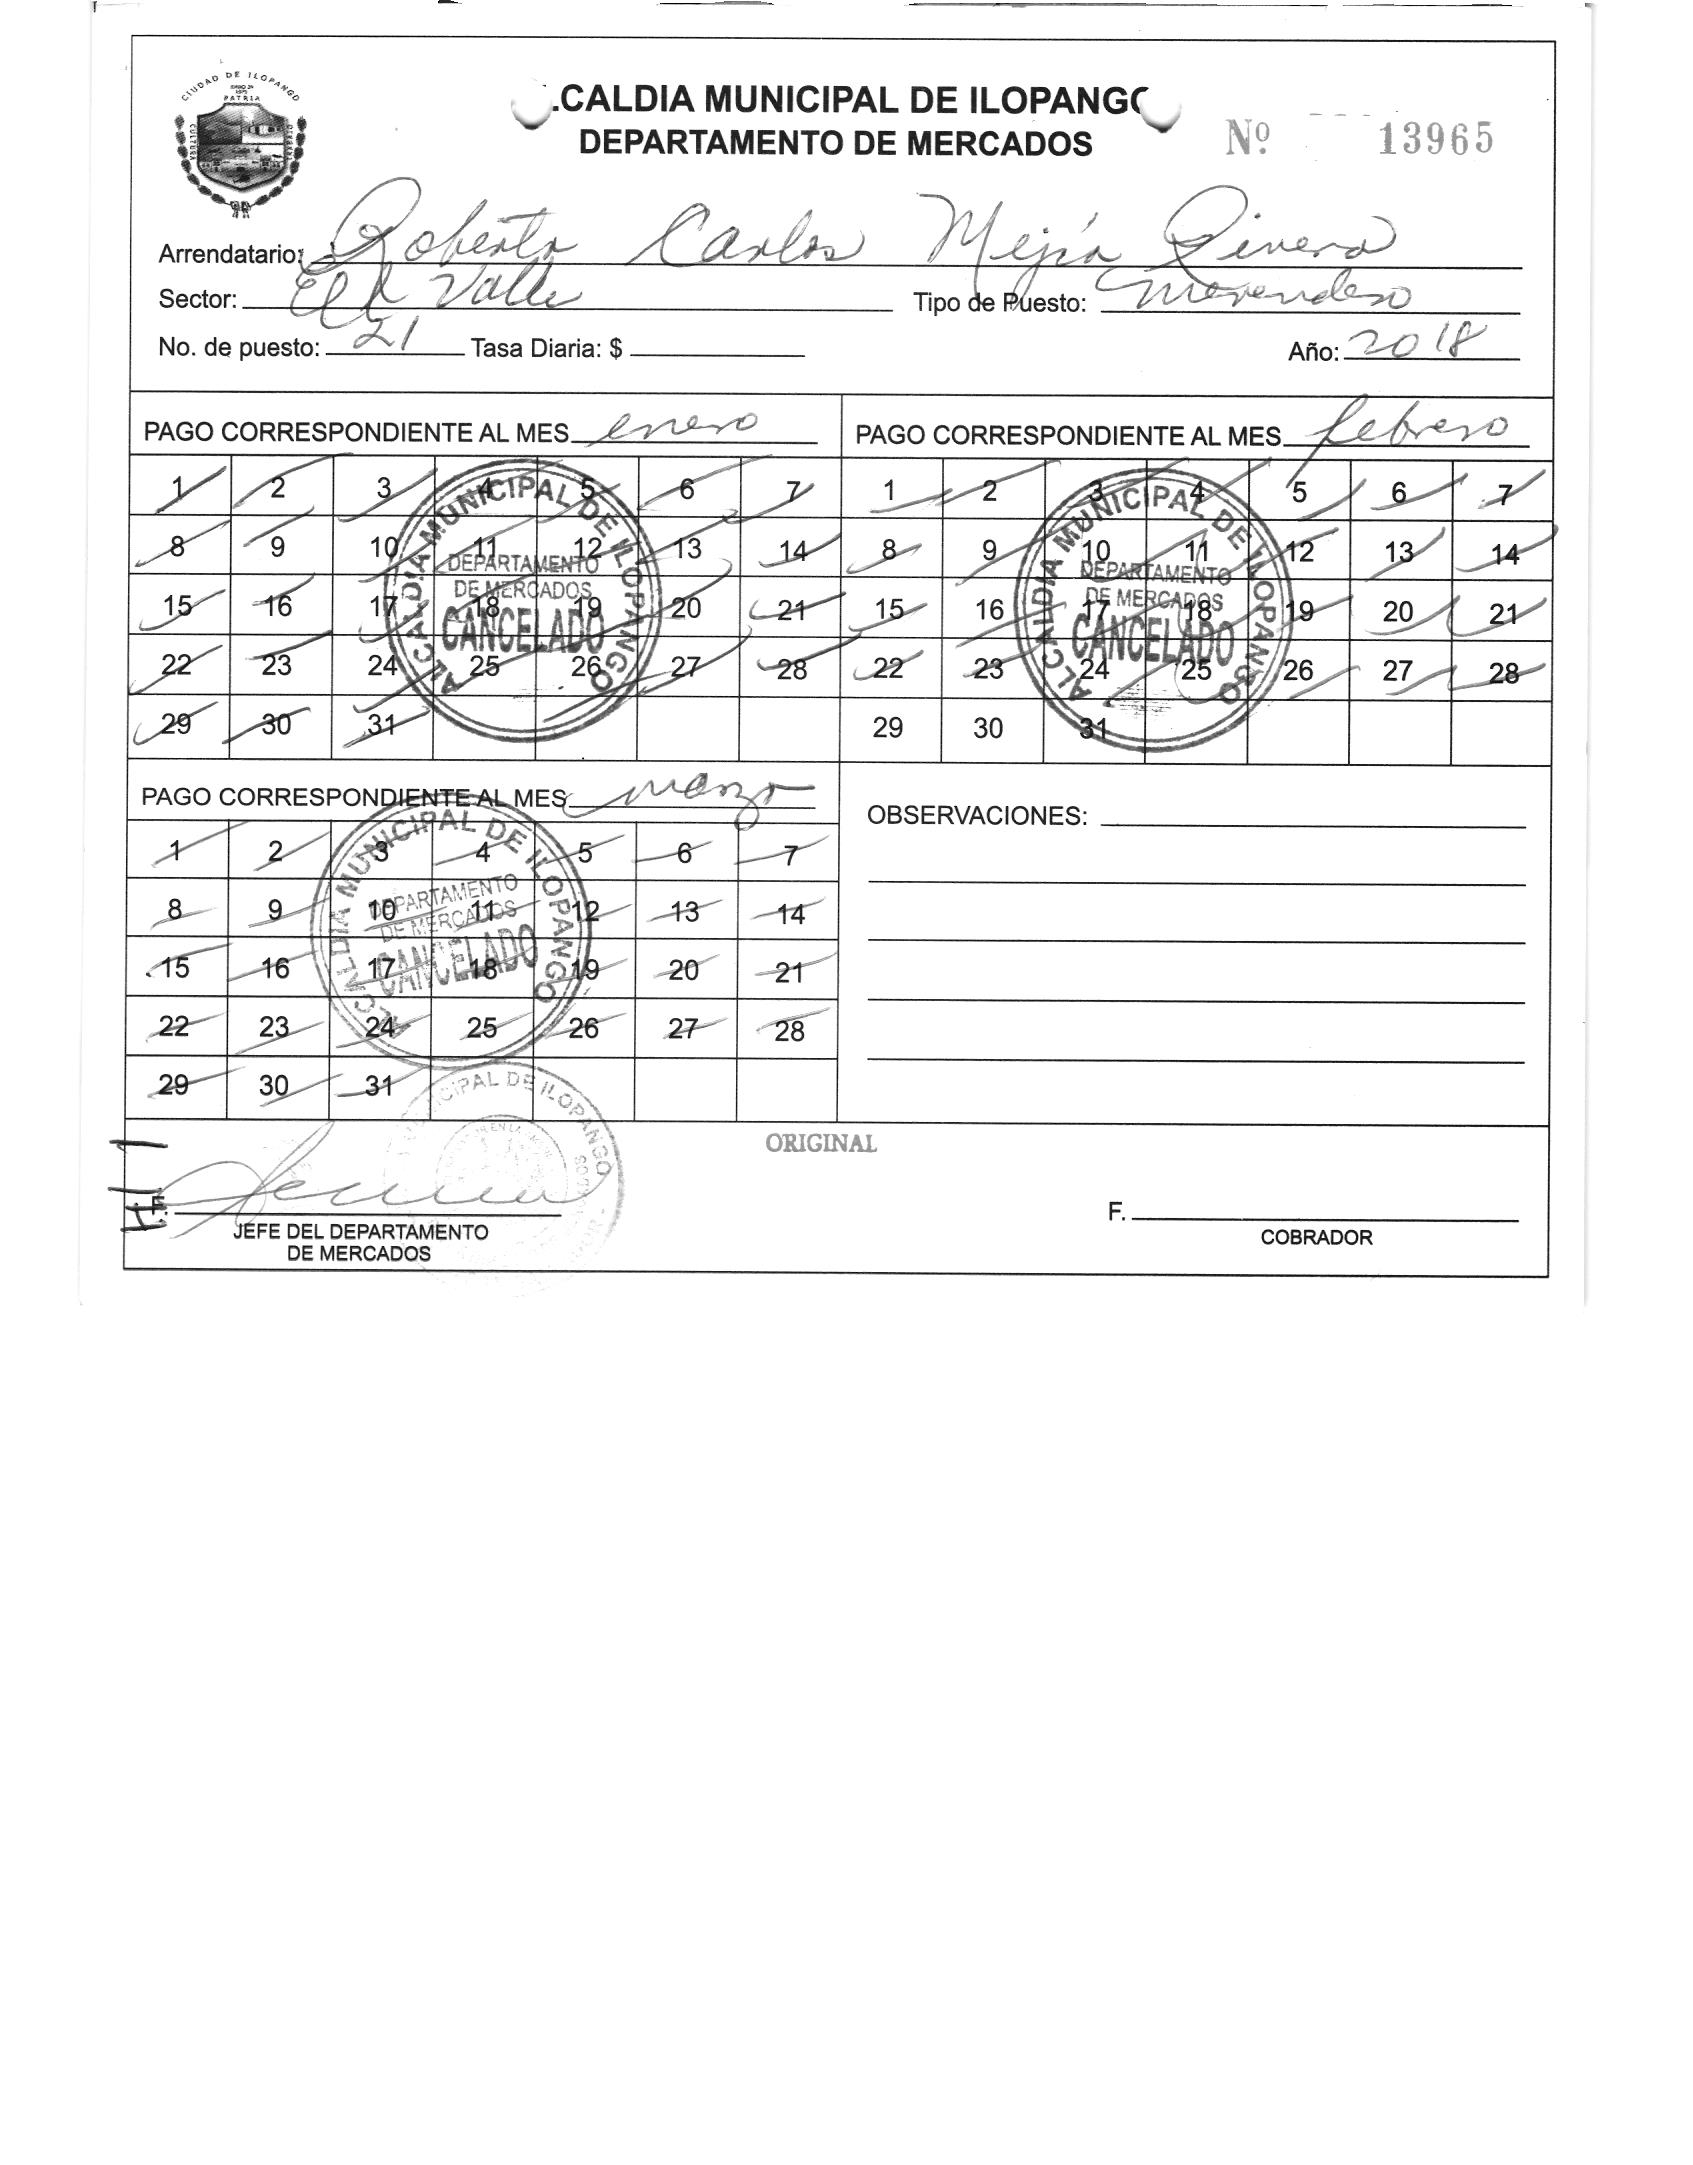 CIUDAD DE ILOPANGO
PATRIA
CULTURA
.CALDIA MUNICIPAL DE ILOPANGO
DEPARTAMENTO DE MERCADOS
Nº 13965
Arrendatario: Roberto Carlos Mejía Rivera
Sector: El Valle Tipo de Puesto: Merendero
No. de puesto: 21 Tasa Diaria: $ Año: 2018
PAGO CORRESPONDIENTE AL MES enero
1 2 3 4 5 6 7
8 9 10 11 12 13 14
15 16 17 18 19 20 21
22 23 24 25 26 27 28
29 30 31
ALCALDIA MUNICIPAL DE ILOPANGO
DEPARTAMENTO
DE MERCADOS
CANCELADO
PAGO CORRESPONDIENTE AL MES febrero
1 2 3 4 5 6 7
8 9 10 11 12 13 14
15 16 17 18 19 20 21
22 23 24 25 26 27 28
29 30 31
ALCALDIA MUNICIPAL DE ILOPANGO
DEPARTAMENTO
DE MERCADOS
CANCELADO
PAGO CORRESPONDIENTE AL MES marzo
1 2 3 4 5 6 7
8 9 10 11 12 13 14
15 16 17 18 19 20 21
22 23 24 25 26 27 28
29 30 31
ALCALDIA MUNICIPAL DE ILOPANGO
DEPARTAMENTO
DE MERCADOS
CANCELADO
OBSERVACIONES:
DE ILOPANGO
ORIGINAL
F.
JEFE DEL DEPARTAMENTO
DE MERCADOS
F.
COBRADOR